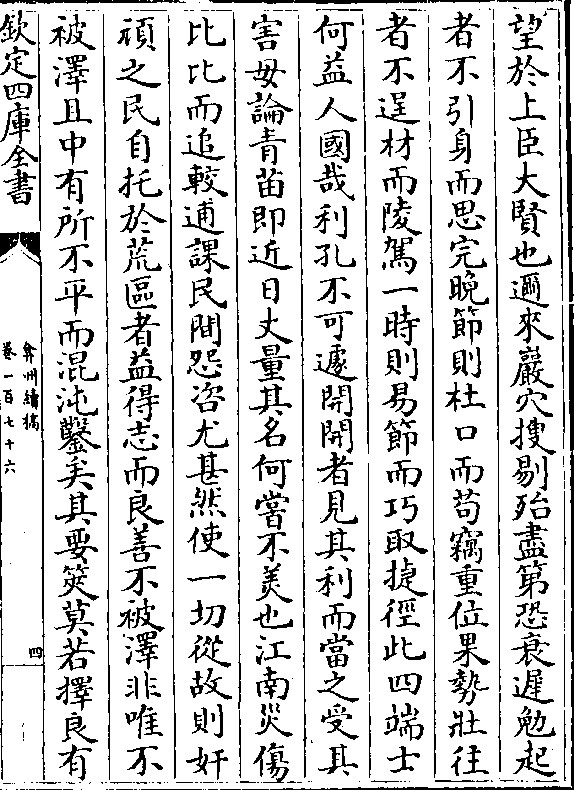 望於上臣大賢也邇來巖穴搜剔殆盡第恐衰遲勉起
者不引身而思完晚節則杜口而苟竊重位果勢壯往
者不逞材而陵駕一時則易節而巧取捷徑此四端士
何益人國哉利孔不可遽開開者見其利而當之受其
害毋論青苗即近日丈量其名何嘗不美也江南災傷
比比而追較逋課民間怨咨尤甚然使一切從故則奸
頑之民自托於荒區者益得志而良善不被澤非唯不
被澤且中有所不平而混沌鑿矣其要筴莫若擇良有
欽定四庫全書
弇州續稿
卷一百七十六
四